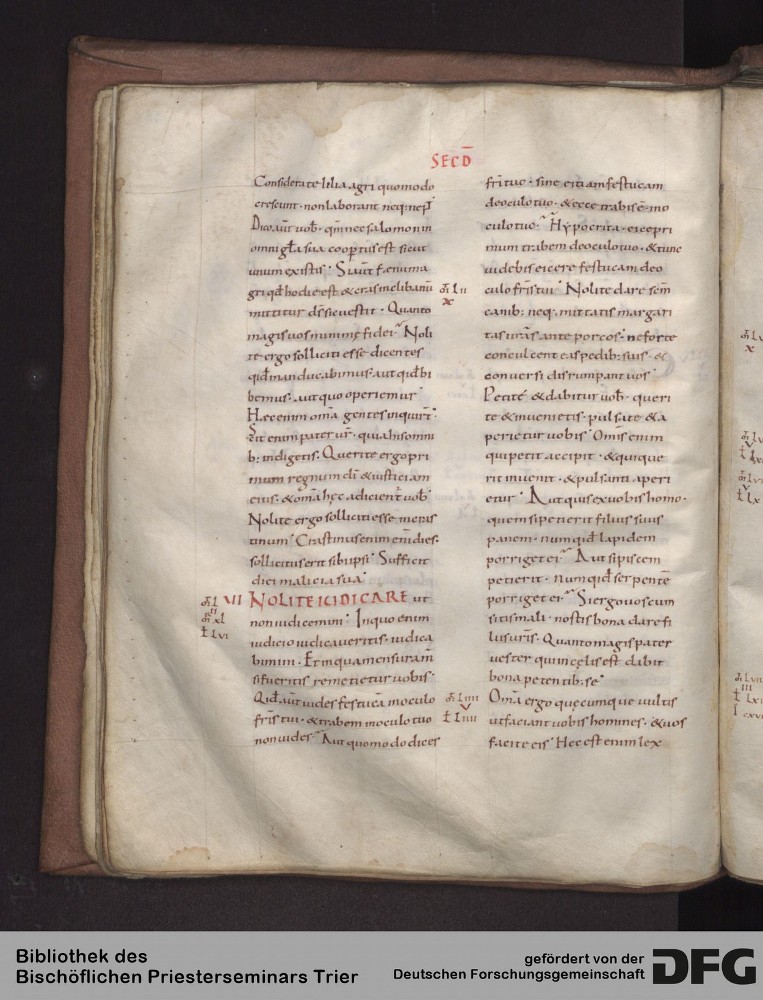 SECD̄
Considerate lilia agri quomodo
crescunt · non laborant neq; neϝ
Dico aūt uoƀ · qm̄ nec salomon in
omni gƚa sua coopertus est sicut
unum ex istis · Si aūt fænum a
gri qđ hodie est & cras in clibanū
mittitur d̄s sic uestit · Quanto
magis uos minimę fidei · Noli
te ergo solliciti esse dicentes
qiđ manducabimus · aut qiđ bi
bemus · aut quo operiemur
Hęc enim om̄a gentes inquirt̄ ·
Scit enim pater ur̄ · quia his omni
b; indigetis · Querite ergo pri
mum regnum dī & iusticiam
eius · & om̄a hęc adicient̄ uoƀ
Nolite ergo solliciti esse in cras
tinum · Crastinus enim dies ·
sollicitus erit sibi ipsi · Sufficit
diei malicia sua
VI NOLITE IUDICARE ut
non iudicemini · In quo enim
iudicio iudicaueritis · iudica
bimini · Et in qua mensura m̄
si fueritis remetietur uobis ·
Qiđ aūt uides festucā in oculo
fr̄is tui · & trabem in oculo tuo
non uides · Aut quomodo dices
fri tuo · sine eitiam festucam
de oculo tuo · & ecce trabis ē in o
culo tuo · Hypocrita · eice pri
mum trabem de oculo tuo · & tunc
uidebis eicere festucam de o
culo fr̄is tui · Nolite dare sc̄m
canib; neq; mittatis margari
tas uras ante porcos · ne forte
conculcent eas pedib; suis · &
conuersi disrumpant uos
Petite & dabitur uoƀ · queri
te & inuenietis · pulsate & a
perietur uobis · Omīs enim
qui petit accipit · & qui que
rit inuenit · & pulsanti aperi
etur · Aut quis ex uobis homo ·
quem si petierit filius suus
panem · numqiđ lapidem
porriget ei · Aut si piscem
petierit · numqiđ serpentē
porriget ei · Si ergo uos cum
sitis mali · nostis bona dare fi
lus uris · Quanto magis pater
uester qui in cęlis est dabit
bona petentib; se
Om̄a ergo quęcumque uultis
ut faciant uobis homines · & uos
facite eis · Hęc est enim lex
Bibliothek des
Bischöflichen Priesterseminars Trier
gefördert von der
Deutschen Forschungsgemeinschaft
DFG